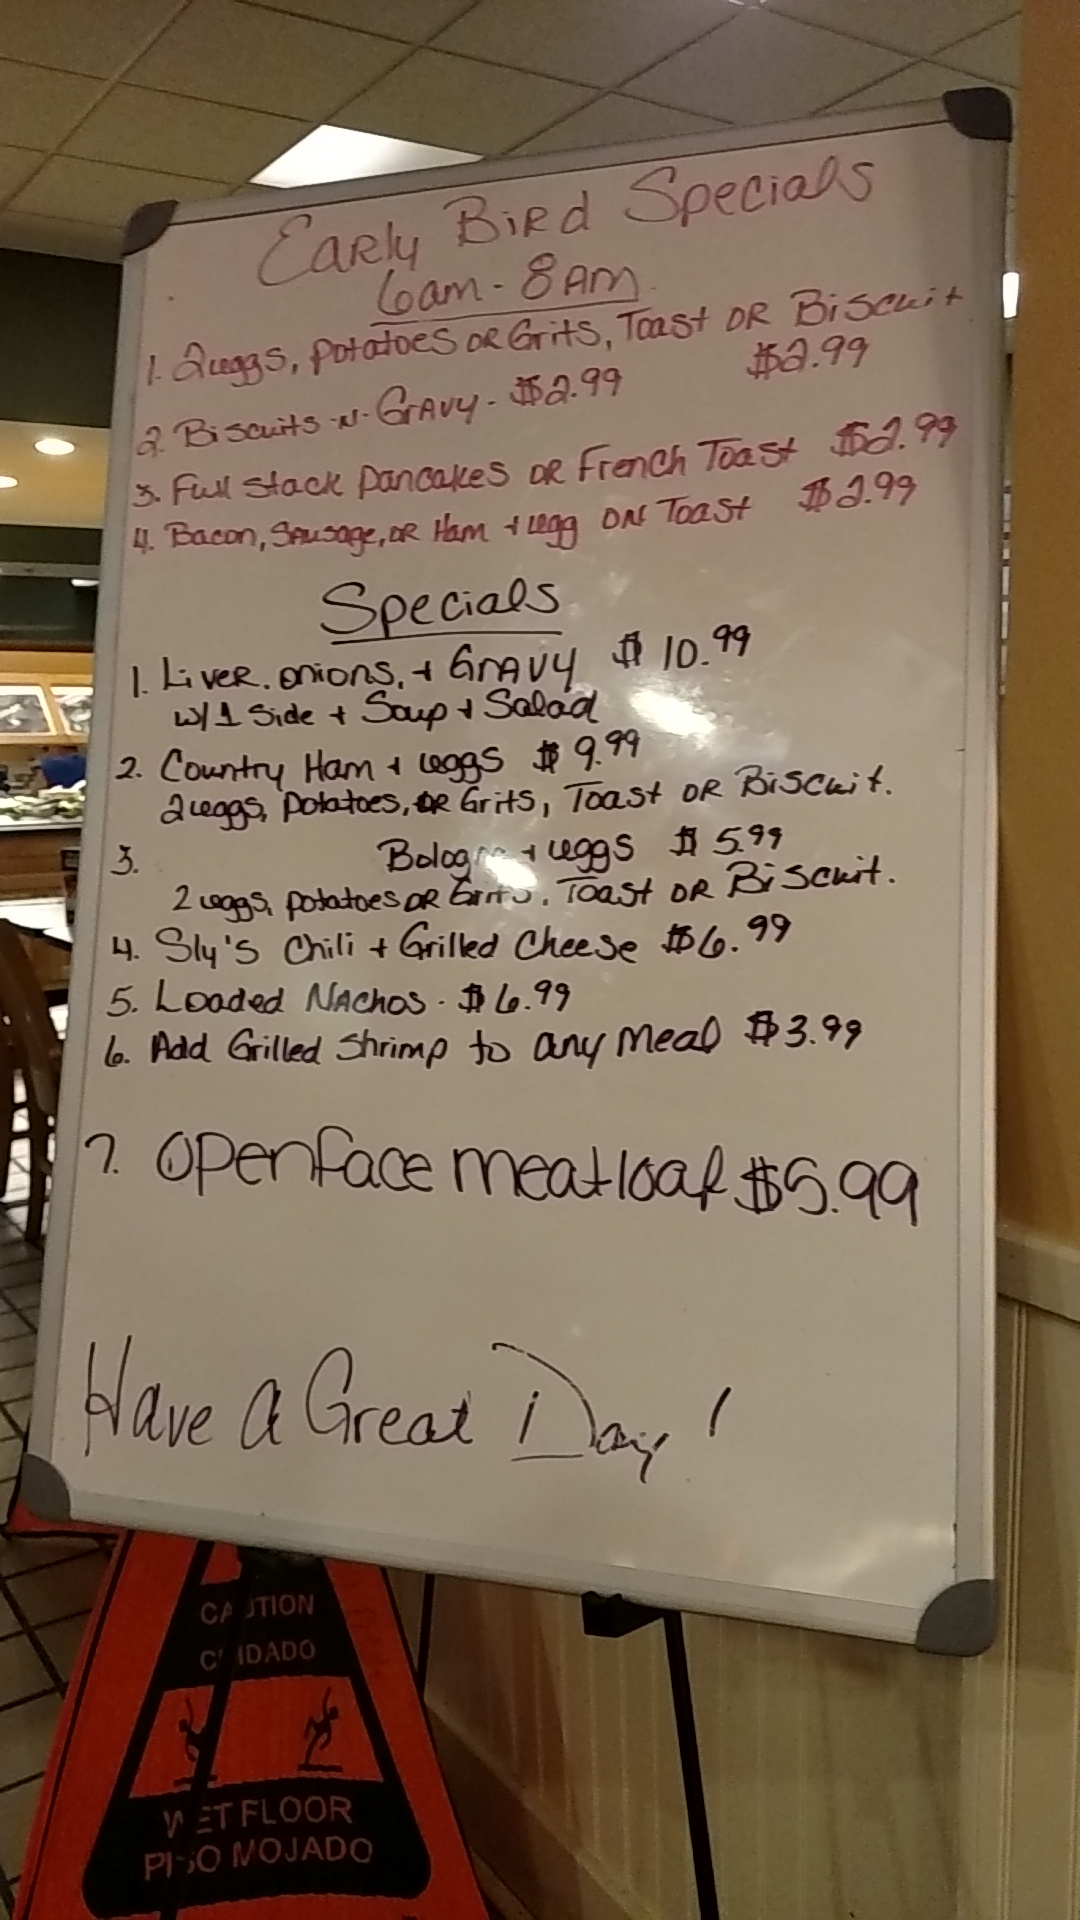 Early Bird Specials
6am - 8AM
1. 2 eggs, potatoes or Grits, Toast or Biscuit
$2.99
2. Biscuits -N- Gravy - $2.99
3. Full Stack Pancakes or French Toast $2.99
4. Bacon, Sausage, or Ham + egg on Toast $2.99
Specials
1. Liver. onions, + Gravy $10.99
w/1 Side + Soup + Salad
2. Country Ham + eggs $9.99
2 eggs, potatoes, or Grits, Toast or Biscuit.
3. Bologna + eggs $5.99
2 eggs, potatoes or Grits, Toast or Biscuit.
4. Sly's Chili + Grilled Cheese $6.99
5. Loaded Nachos - $6.99
6. Add Grilled Shrimp to any meal $3.99
7. Openface meatloaf $5.99
Have A Great Day!
CAUTION
CUIDADO
WET FLOOR
PISO MOJADO